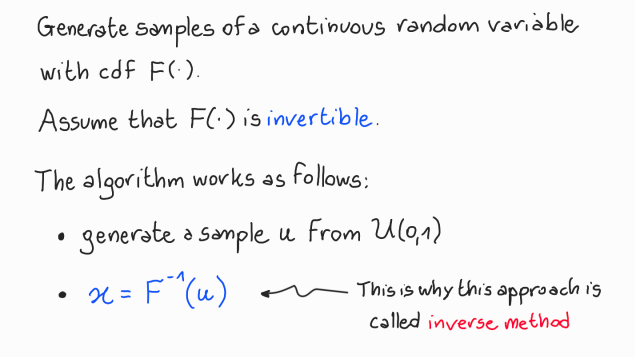 Generate samples of a continuous random variable
with cdf F(·).
Assume that F(·) is invertible.
The algorithm works as follows:
• generate a sample u from U(0,1)
• x = F⁻¹(u)
This is why this approach is
called inverse method